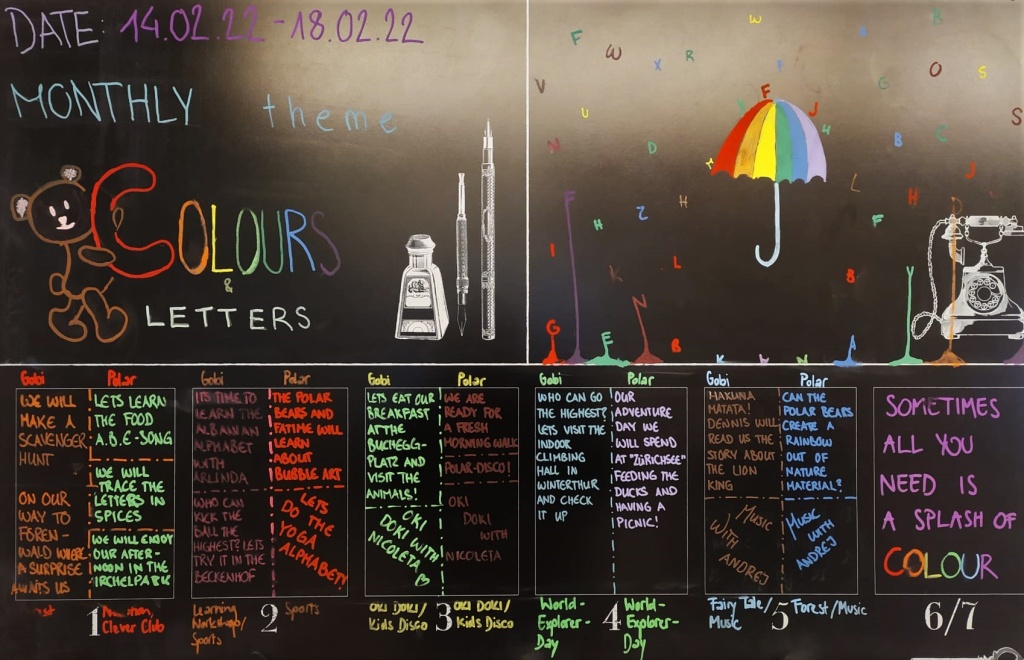 DATE: 14.02.22 - 18.02.22
MONTHLY theme
COLOURS
&
LETTERS
Gobi
WE WILL
MAKE A
SCAVENGER
HUNT
ON OUR
WAY TO
FOREN-
WALD WHERE
A SURPRISE
AWAITS US
Polar
LETS LEARN
THE FOOD
A.B.C-SONG
WE WILL
TRACE THE
LETTERS IN
SPICES
WE WILL ENJOY
OUR AFTER-
NOON IN THE
IRCHELPARK
1
Clever Club
Gobi
ITS TIME TO
LEARN THE
ALBANIAN
ALPHABET
WITH
ARLINDA
WHO CAN
KICK THE
BALL THE
HIGHEST? LETS
TRY IT IN THE
BECKENHOF
Polar
THE POLAR
BEARS AND
FATIME WILL
LEARN
ABOUT
BUBBLE ART
LETS
DO THE
YOGA
ALPHABET!
Learning
Workshop/
Sports
2
Sports
Gobi
LETS EAT OUR
BREAKFAST
AT THE
BUCHEGG-
PLATZ AND
VISIT THE
ANIMALS!
OKI
DOKI WITH
NICOLETA
Polar
WE ARE
READY FOR
A FRESH
MORNING WALK
POLAR-DISCO!
OKI
DOKI
WITH
NICOLETA
Oki Doki/
Kids Disco
3
Oki Doki/
Kids Disco
Gobi
WHO CAN GO
THE HIGHEST?
LETS VISIT THE
INDOOR
CLIMBING
HALL IN
WINTERTHUR
AND CHECK
IT UP
Polar
OUR
ADVENTURE
DAY WE
WILL SPEND
AT "ZÜRICHSEE"
FEEDING THE
DUCKS AND
HAVING A
PICNIC!
World-
Explorer-
Day
4
World-
Explorer-
Day
Gobi
HAKUNA
MATATA!
DENNIS WILL
READ US THE
STORY ABOUT
THE LION
KING
MUSIC
WITH
ANDREJ
Polar
CAN THE
POLAR BEARS
CREATE A
RAINBOW
OUT OF
NATURE
MATERIAL?
MUSIC
WITH
ANDREJ
Fairy Tale/
Music
5
Forest/Music
SOMETIMES
ALL YOU
NEED IS
A SPLASH OF
COLOUR
6/7